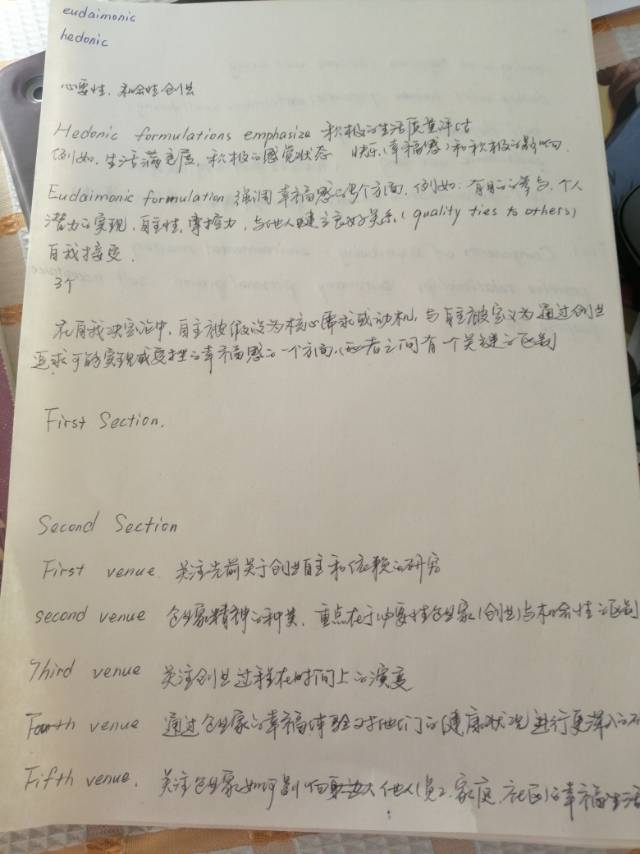 eudaimonic
hedonic
必要性、机会性创业
Hedonic formulations emphasize 积极的生活质量评估
例如，生活满意度，积极的感觉状态 快乐(幸福感)和积极的影响.
Eudaimonic formulation 强调幸福感的多个方面，例如：有目的的参与，个人
潜力的实现，自主性，掌控力，与他人建立良好关系(quality ties to others)
自我接受.
3个
在自我决定论中，自主被假设为核心需求或动机，与自主被定义为通过创业
追求可能实现或受挫的幸福感的一个方面，两者之间有一个关键的区别
First Section.
Second Section
First venue 关注先前关于创业自主和依赖的研究
second venue 企业家精神的种类，重点在于必要性企业家(创业)与机会性的区别
Third venue 关注创业过程在时间上的演变
Fourth venue 通过企业家的幸福体验对他们的健康状况进行更深入的
Fifth venue. 关注企业家如何影响他人(员工、家庭、社区)的幸福生活